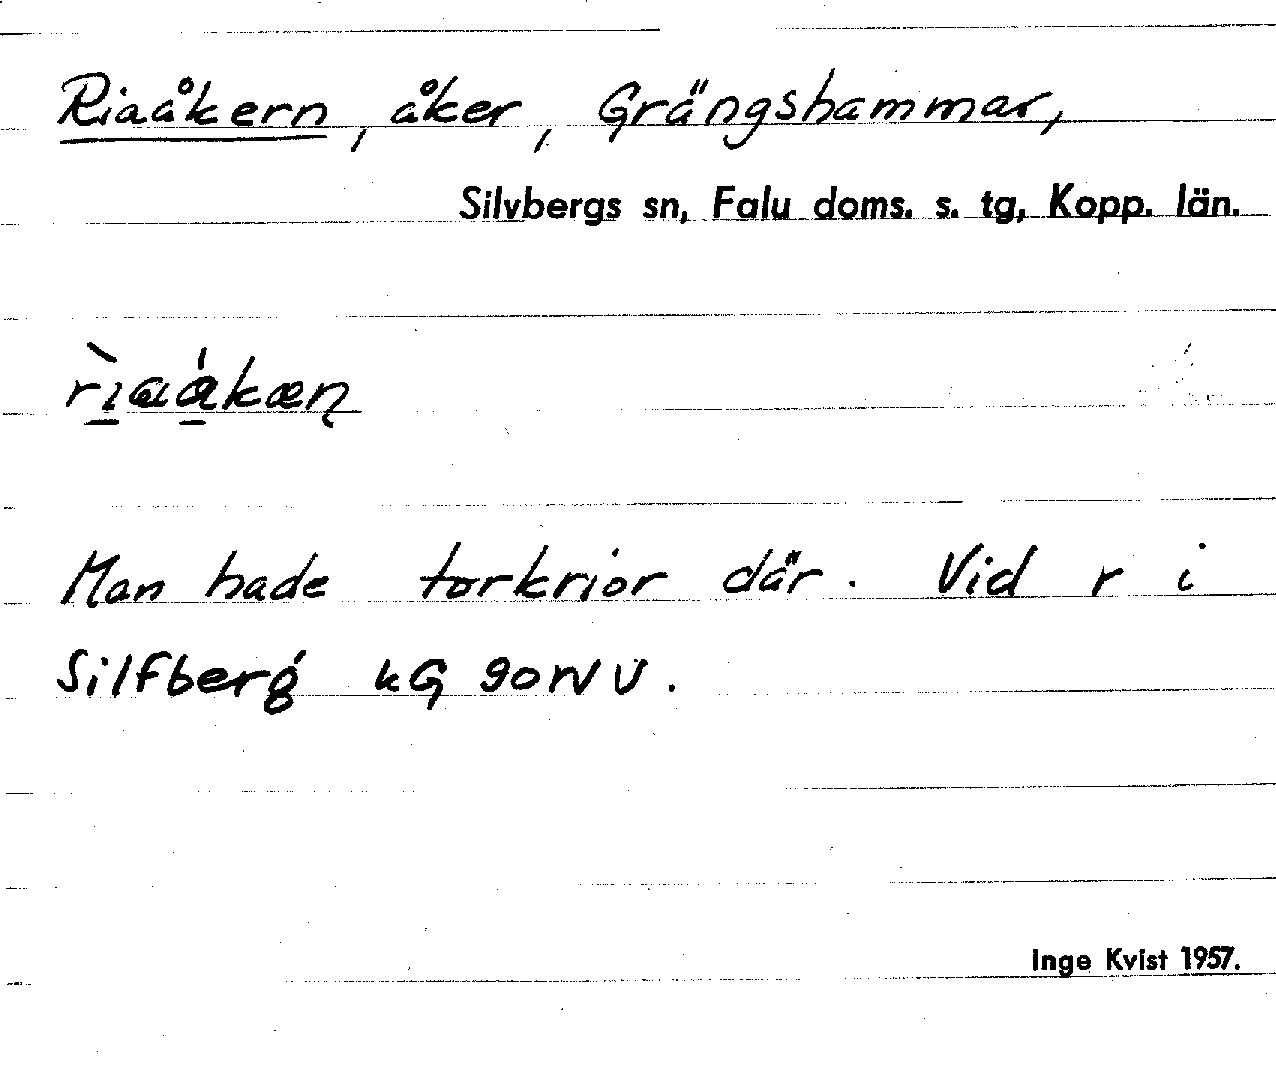 Riaåkern, åker, Grängshammar,
Silvbergs sn, Falu doms. s. tg, Kopp. län.
Man hade torkrior där. Vid r i
Silfberg kG 90NV V.
Inge Kvist 1957.